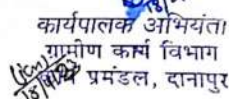 कार्यपालक अभियंता
ग्रामीण कार्य विभाग
प्रमंडल, दानापुर